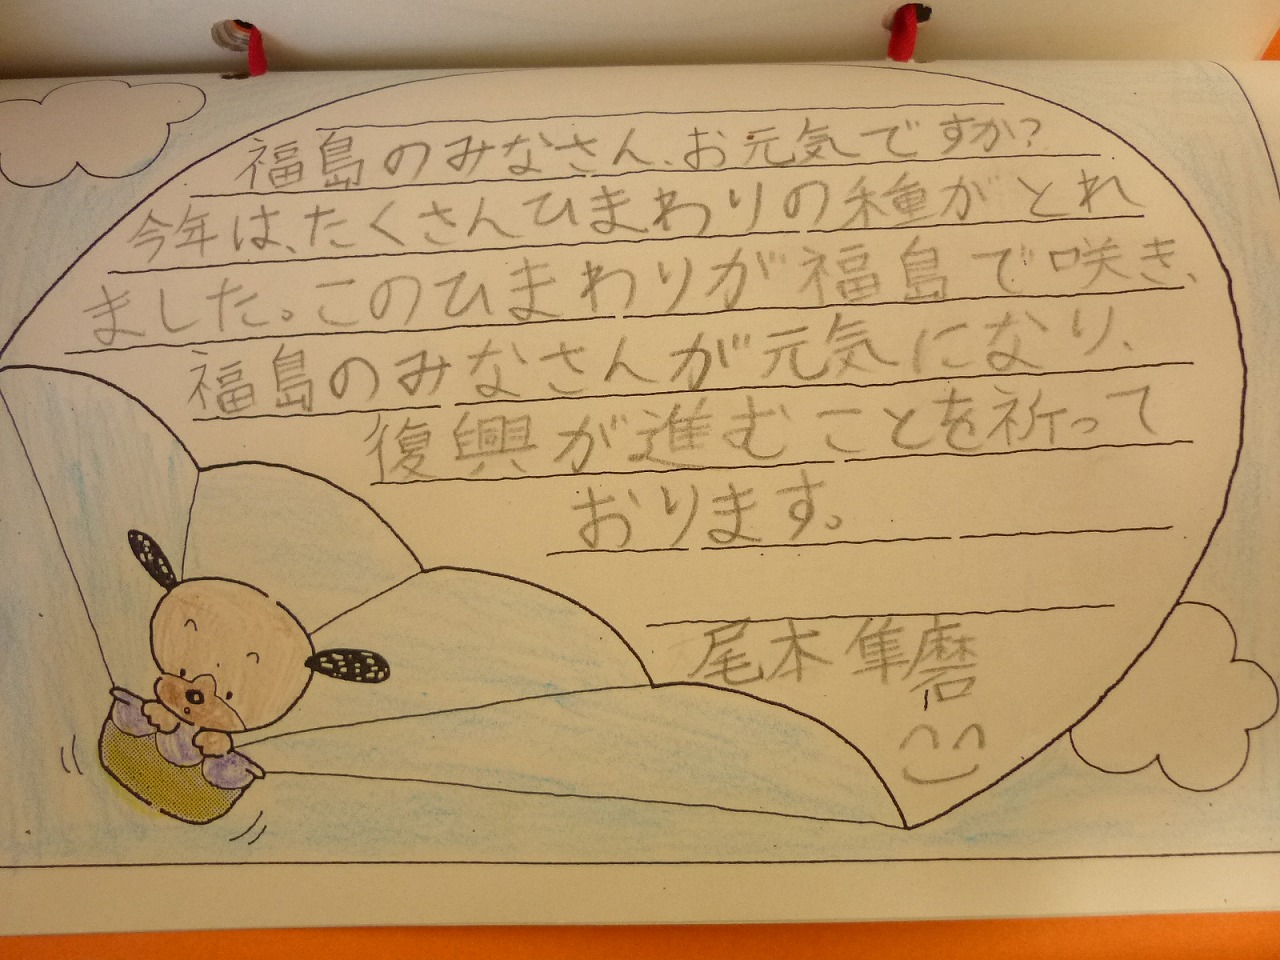 福島のみなさん、お元気ですか?
今年は、たくさんひまわりの種がとれ
ました。このひまわりが福島で咲き、
福島のみなさんが元気になり、
復興が進むことを祈って
おります。
尾木 隼磨